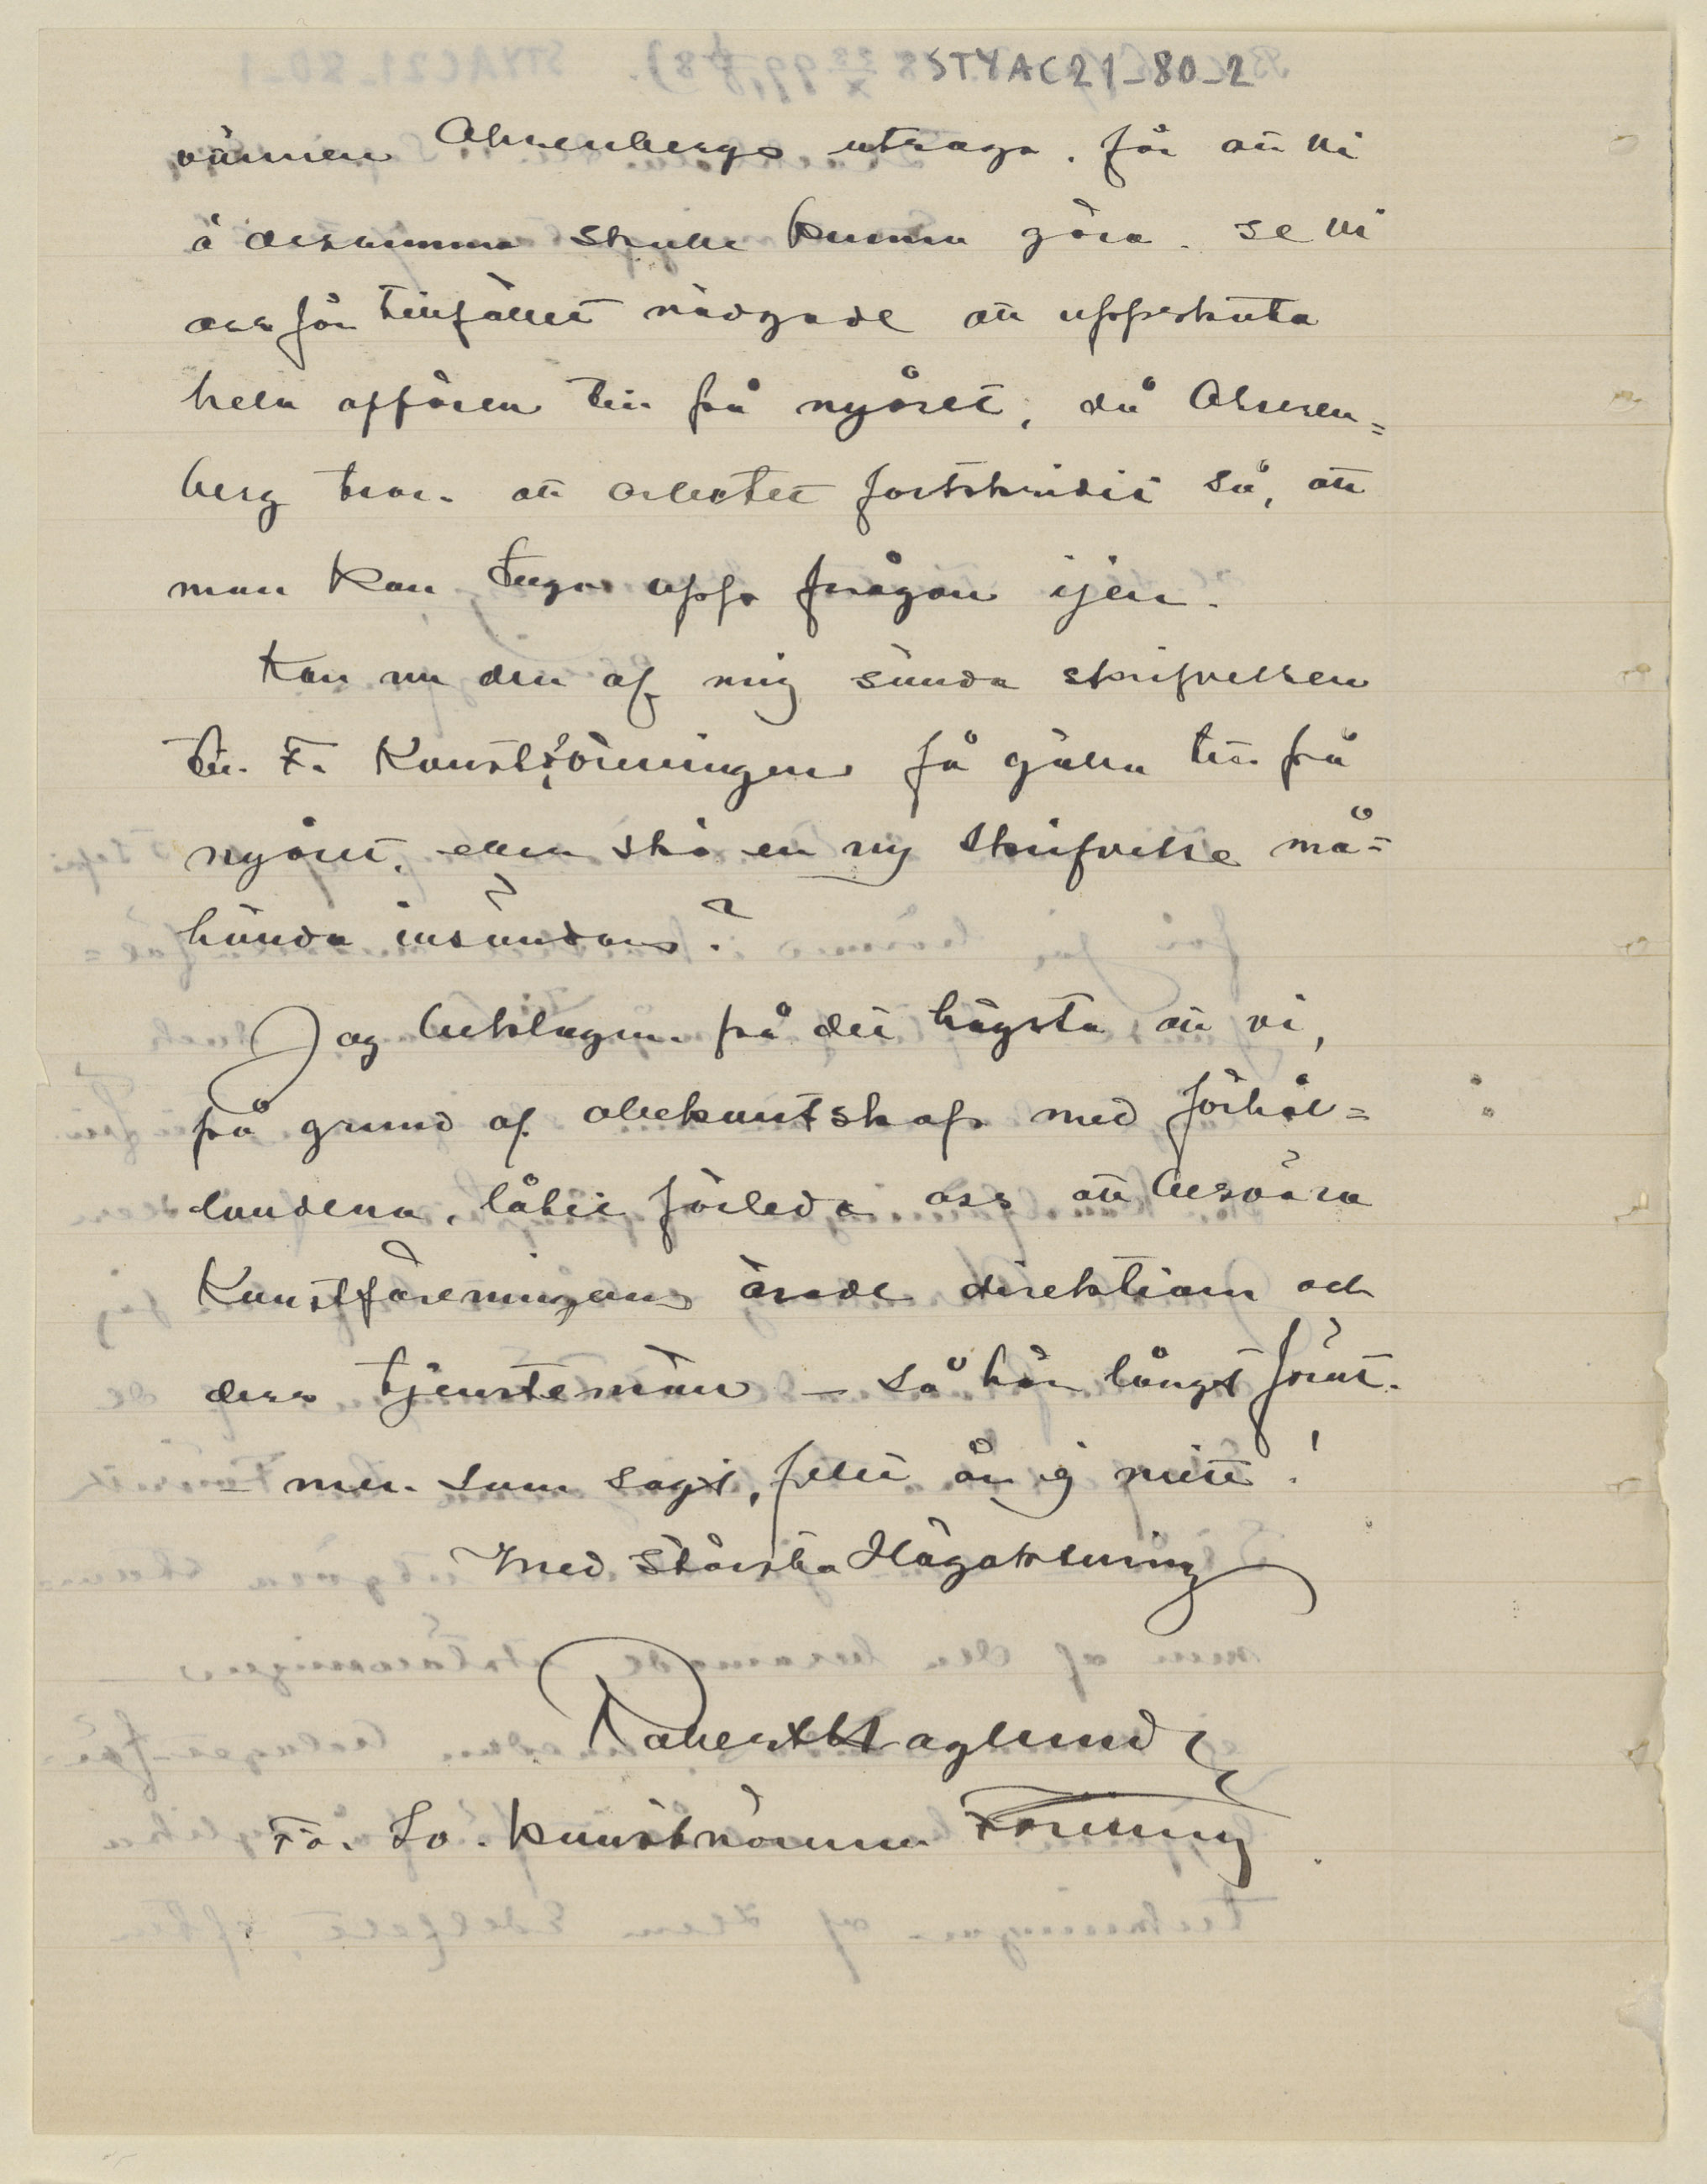 STYAC21_80_2
vännen Ahrenbergs utsago, för att vi
å desamma skulle kunna göra. se vi
oss för tillfället nödgade att uppskuta
hela affären till på nyåret, då Ahren=
berg tror att arbetet fortskridit så, att
man kan taga upp frågan igen.
Kan nu den af mig sända skrifvelsen
till F. Konstföreningen få gälla till på
nyåret, eller ska en ny skrifvelse må=
hända insändas?
Jag beklagar på det högsta att vi,
på grund af obekantskap med förhål=
landena, låtit förleda oss att besvära
Konstföreningens ärade direktion och
dess tjenstemän – så här långt förut.
– men som sagt, felet är ej mitt!
Med Största Högaktning
Robert Haglund
Fö. Sv. Kunstnärernas Förening